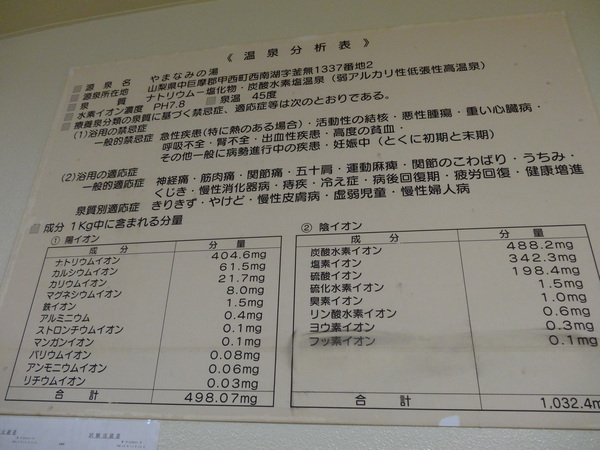 《 温泉分析表 》
源泉名 やまなみの湯
源泉所在地 山梨県中巨摩郡甲西町西南湖字釜無1337番地2
泉質 ナトリウム－塩化物・炭酸水素塩温泉（弱アルカリ性低張性高温泉）
水素イオン濃度 PH7.8 泉温 45度
療養泉分類の泉質に基づく禁忌症、適応症等は次のとおりである。
(1)浴用の禁忌症
一般的禁忌症 急性疾患(特に熱のある場合)・活動性の結核・悪性腫瘍・重い心臓病・
呼吸不全・腎不全・出血性疾患・高度の貧血・
その他一般に病勢進行中の疾患・妊娠中（とくに初期と末期）
(2)浴用の適応症
一般的適応症 神経痛・筋肉痛・関節痛・五十肩・運動麻痺・関節のこわばり・うちみ・
くじき・慢性消化器病・痔疾・冷え症・病後回復期・疲労回復・健康増進
泉質別適応症 きりきず・やけど・慢性皮膚病・虚弱児童・慢性婦人病
成分 1Kg中に含まれる分量
① 陽イオン
成分 分量
ナトリウムイオン 404.6mg
カルシウムイオン 61.5mg
カリウムイオン 21.7mg
マグネシウムイオン 8.0mg
鉄イオン 1.5mg
アルミニウム 0.4mg
ストロンチウムイオン 0.1mg
マンガンイオン 0.1mg
バリウムイオン 0.08mg
アンモニウムイオン 0.06mg
リチウムイオン 0.03mg
合計 498.07mg
② 陰イオン
成分 分量
炭酸水素イオン 488.2mg
塩素イオン 342.3mg
硫酸イオン 198.4mg
硫化水素イオン 1.5mg
臭素イオン 1.0mg
リン酸水素イオン 0.6mg
ヨウ素イオン 0.3mg
フッ素イオン 0.1mg
合計 1,032.4m